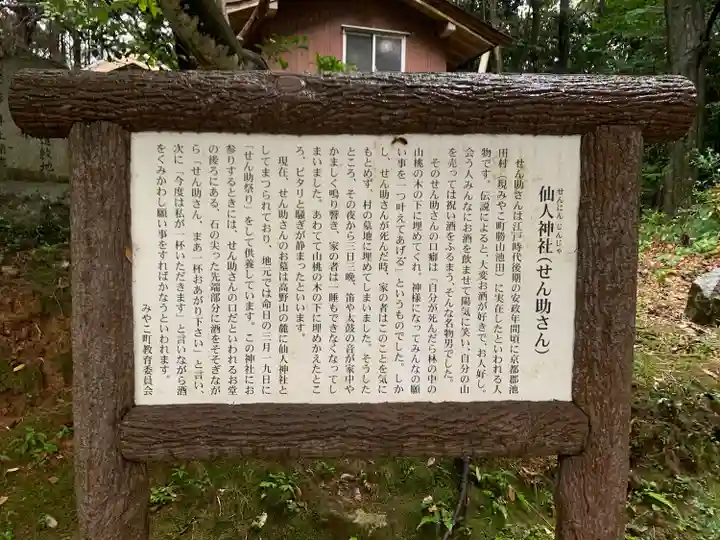 せんにん じんじゃ
仙人神社(せん助さん)
せん助さんは江戸時代後期の安政年間頃に京都郡池
田村(現みやこ町勝山池田)に実在したといわれる人
物です。伝説によると、大変お酒が好きで、お人好し。
会う人みんなにお酒を飲ませて陽気に笑い、自分の山
を売っては祝い酒をふるまう、そんな名物男でした。
そのせん助さんの口癖は、「自分が死んだら林の中の
山桃の木の下に埋めてくれ。神様になってみんなの願
い事を一つ叶えてあげる」というものでした。しか
し、せん助さんが死んだ時、家の者はこのことを気に
もとめず、村の墓地に埋めてしまいました。そうした
ところ、その夜から三日三晩、笛や太鼓の音が家中や
かましく鳴り響き、家の者は一睡もできなくなってし
まいました。あわてて山桃の木の下に埋めかえたとこ
ろ、ピタリと騒ぎが静まったといいます。
現在、せん助さんのお墓は高野山の麓に仙人神社と
してまつられており、地元では命日の三月一九日に
「せん助祭り」をして供養しています。この神社にお
参りするときには、せん助さんの口だといわれるお堂
の後ろにある、石の尖った先端部分に酒をそそぎなが
ら「せん助さん、まあ一杯おあがり下さい」と言い、
次に「今度は私が一杯いただきます」と言いながら酒
をくみかわし願い事をすればかなうといわれます。
みやこ町教育委員会